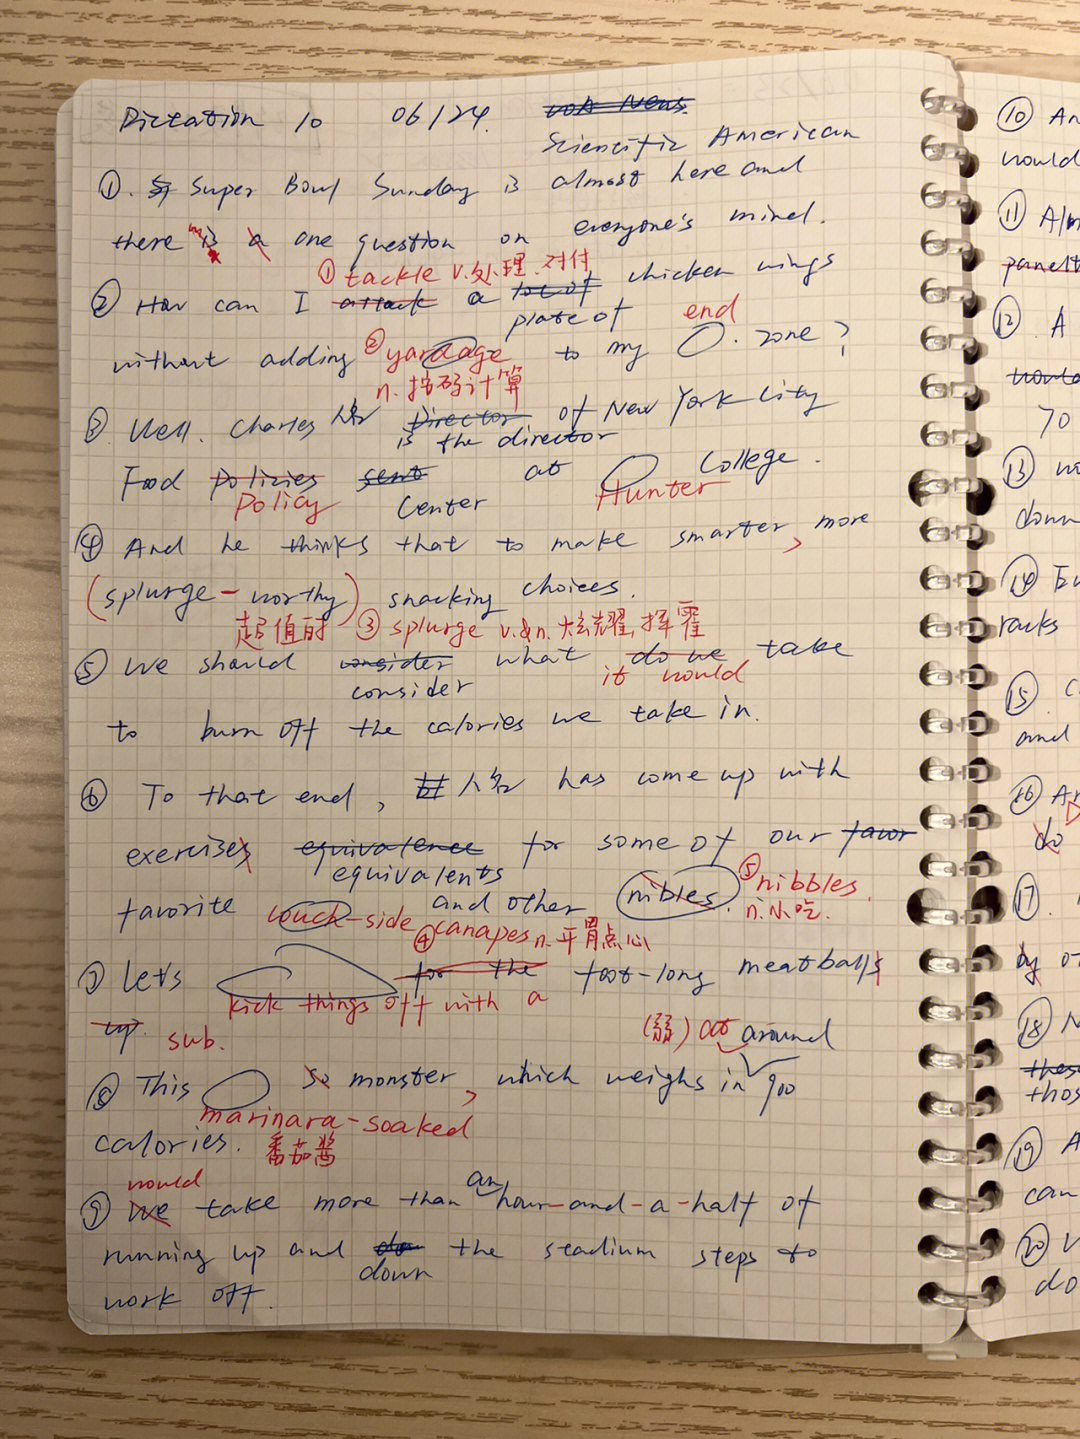 Dictation 10 06/24. VOA News
Scientific American
①. Super Bowl Sunday is almost here and
there is a one question on everyone's mind.
① tackle v.处理.对付
② How can I attack a lot of chicken wings
plate of end
without adding ② yardage to my . zone ?
n. 按码计算
③ Well. Charles 人名 Director of New York City
is the director
Food Policies sent at College .
Policy Center Hunter
④ And he thinks that to make smarter, more
(splurge-worthy) snacking choices.
超值的 ③ splurge v.&n. 炫耀,挥霍
⑤ We should consider what do we take
consider it would
to burn off the calories we take in.
⑥ To that end, 人名 has come up with
exercises equivalence for some of our favor
equivalents
favorite couch-side and other nibles. ⑤ nibbles.
n.小吃.
④ canapes n.开胃点心
⑦ Let's for the foot-long meatballs
kick things off with a
up. sub.
(弱) at around
⑧ This so monster, which weighs in 900
marinara-soaked
calories. 番茄酱
would an
⑨ We take more than hour-and-a-half of
running up and do the stadium steps to
down
work off.
⑩ An
would
⑪ Al
panel
⑫ A
would
70
⑬
down
⑭
racks
⑮
and
⑯ Ar
do
⑰
by
⑱ N
these
thos
⑲ A
can
⑳
do